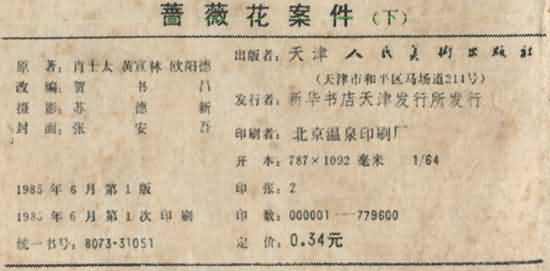 蔷薇花案件（下）
原著：肖士太 黄宣林 欧阳德
改编：贺书昌
摄影：苏德新
封面：张安吾
1985年6月第1版
1985年6月第1次印刷
统一书号：8073·31051
出版者：天津人民美术出版社
（天津市和平区马场道211号）
发行者：新华书店天津发行所发行
印刷者：北京温泉印刷厂
开本：787×1092毫米 1/64
印张：2
印数：000001—779600
定价：0.34元